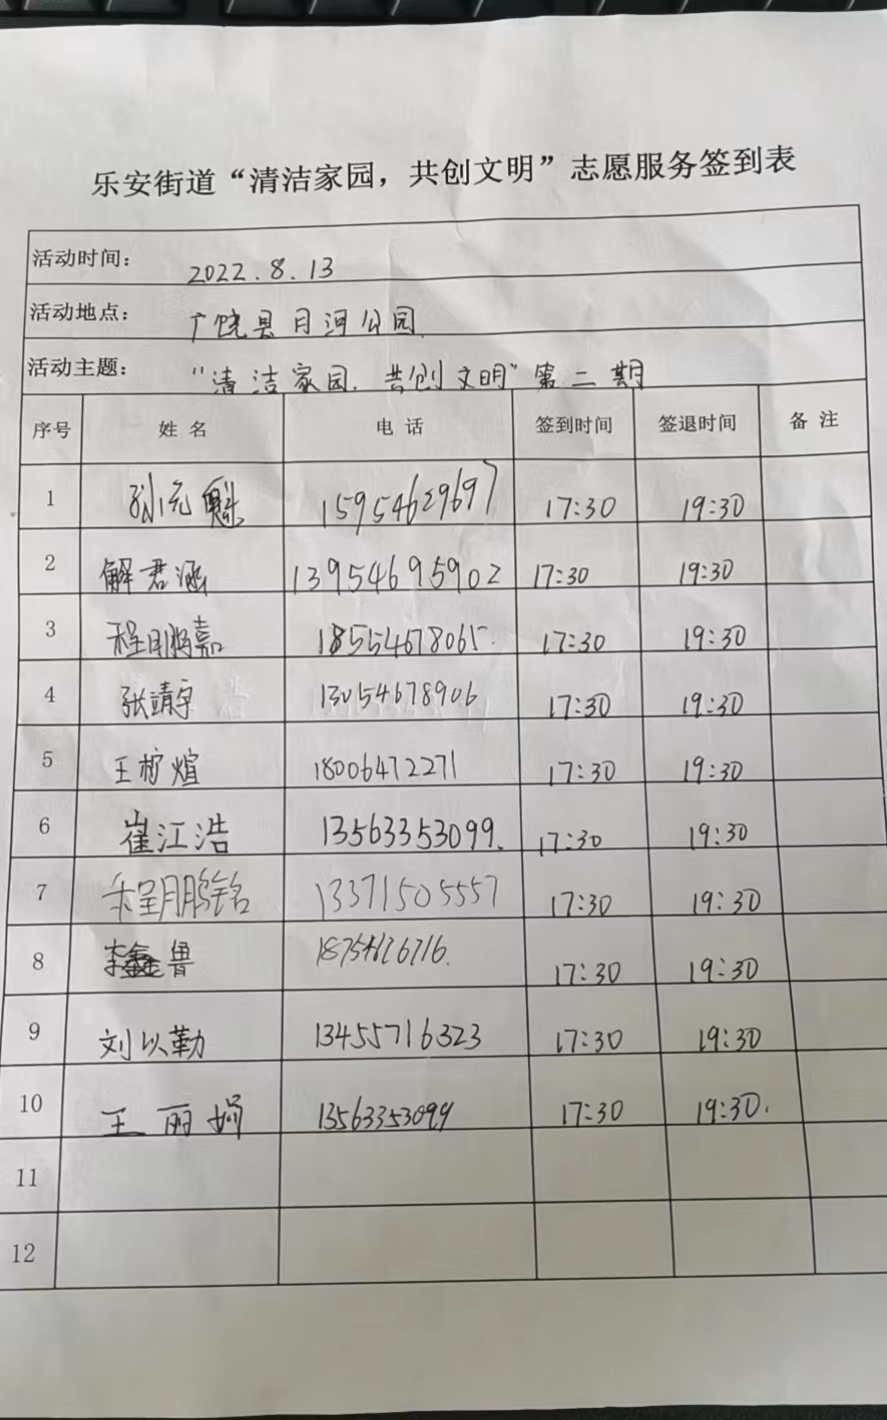 乐安街道“清洁家园，共创文明”志愿服务签到表
活动时间： 2022.8.13
活动地点： 广饶县月河公园
活动主题： “清洁家园，共创文明”第二期
序号 姓名 电话 签到时间 签退时间 备注
1 孙元魁 15954629697 17:30 19:30
2 解君涵 13954695902 17:30 19:30
3 程鹏嘉 18554678065. 17:30 19:30
4 张靖宇 13054678906 17:30 19:30
5 王柠煊 18006472271 17:30 19:30
6 崔江浩 13563353099. 17:30 19:30
7 程鹏铭 13371505557 17:30 19:30
8 李鲁 17:30 19:30
9 刘以勤 13455716323 17:30 19:30
10 王丽娟 13563353099 17:30 19:30.
11
12